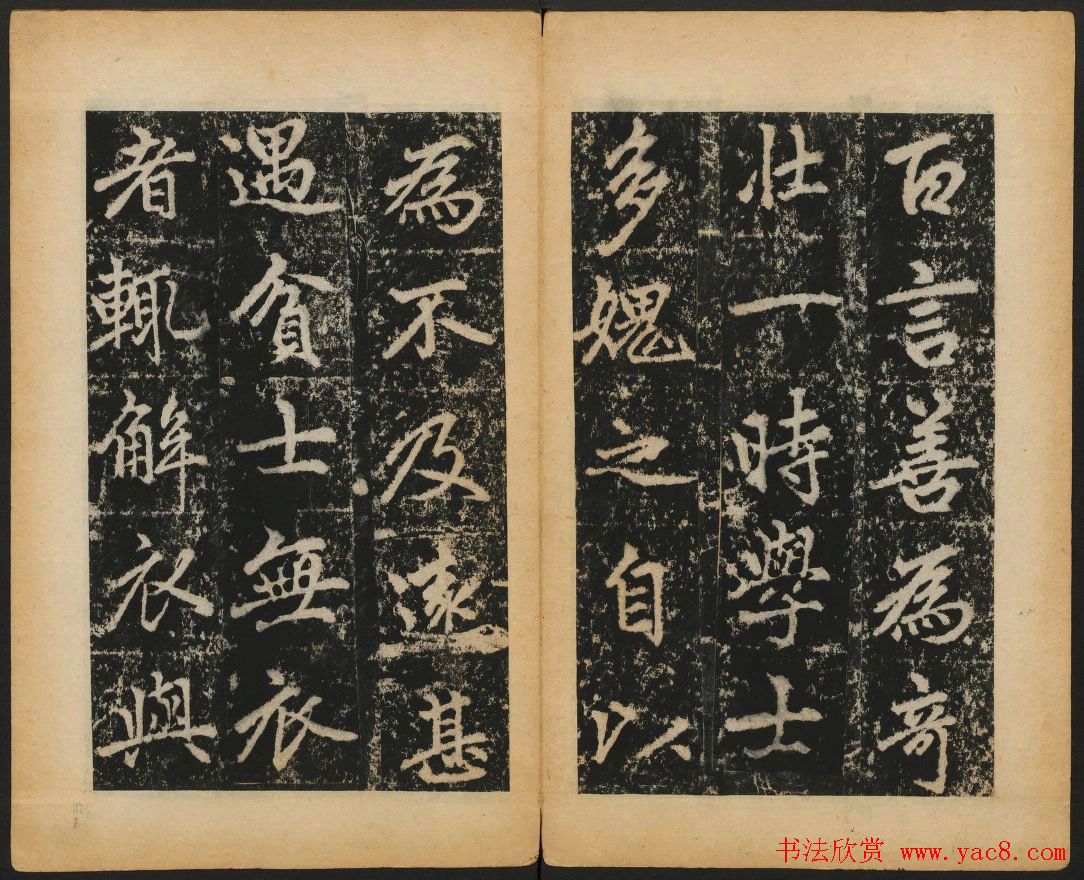 百言善為奇
壯一時學士
多媿之自以
為不及遠甚
遇貧士無衣
者輒解衣與
书法欣赏 www.yac8.com